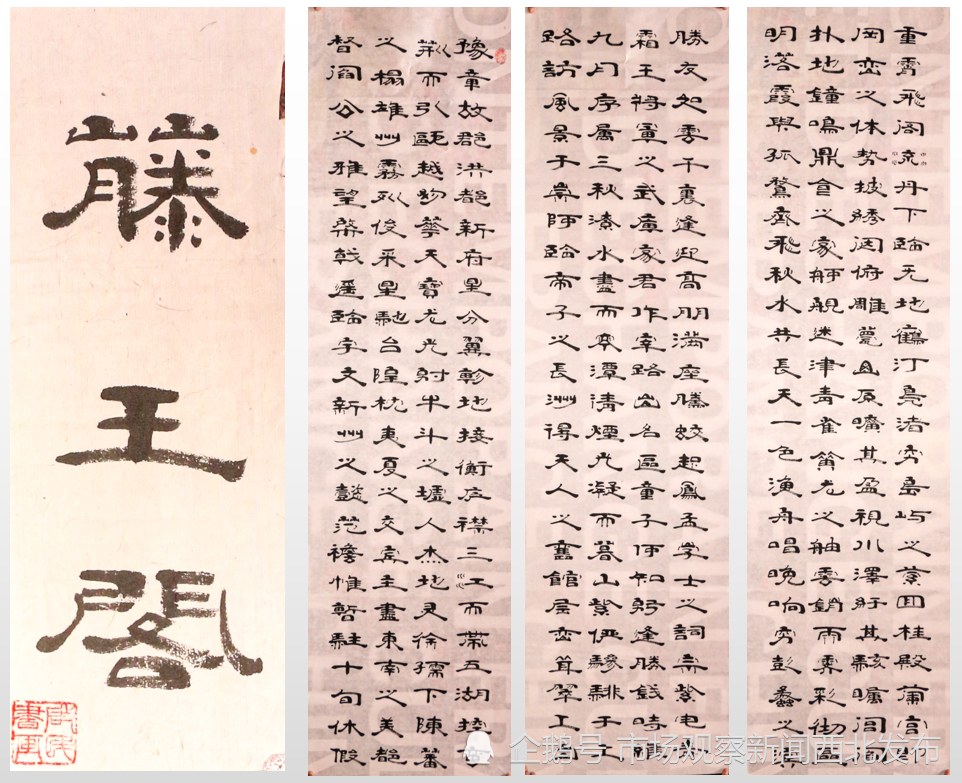 滕王閣
豫章故郡洪都新府星分翼軫地接衡庐襟三江而帶五湖控
荆而引甌越物華天寶龙光射牛斗之墟人杰地灵徐孺下陳蕃
之榻雄州霧列俊采星馳台隍枕夷夏之交賓主盡東南之美都
督阎公之雅望棨戟遥臨宇文新州之懿范襜帷暫駐十旬休假
勝友如雲千裏逢迎高朋满座騰蛟起鳳孟学士之詞宗紫電
霜王將軍之武庫家君作宰路出名區童子何知躬逢勝餞時維
九月序属三秋潦水盡而寒潭清煙光凝而暮山紫儼驂騑于上
路訪風景于崇阿臨帝子之長洲得天人之舊館层峦耸翠上出
重霄飛阁流丹下臨无地鶴汀凫渚穷島屿之縈回桂殿蘭宫
冈峦之体勢披綉闼俯雕甍山原曠其盈視川澤紆其駭矚闾阎
扑地鐘鳴鼎食之家舸艦迷津青雀黄龙之舳雲銷雨霽彩徹區
明落霞與孤鶩齊飛秋水共長天一色漁舟唱晚响穷彭蠡之濱
企鹅号 市场观察新闻西北发布